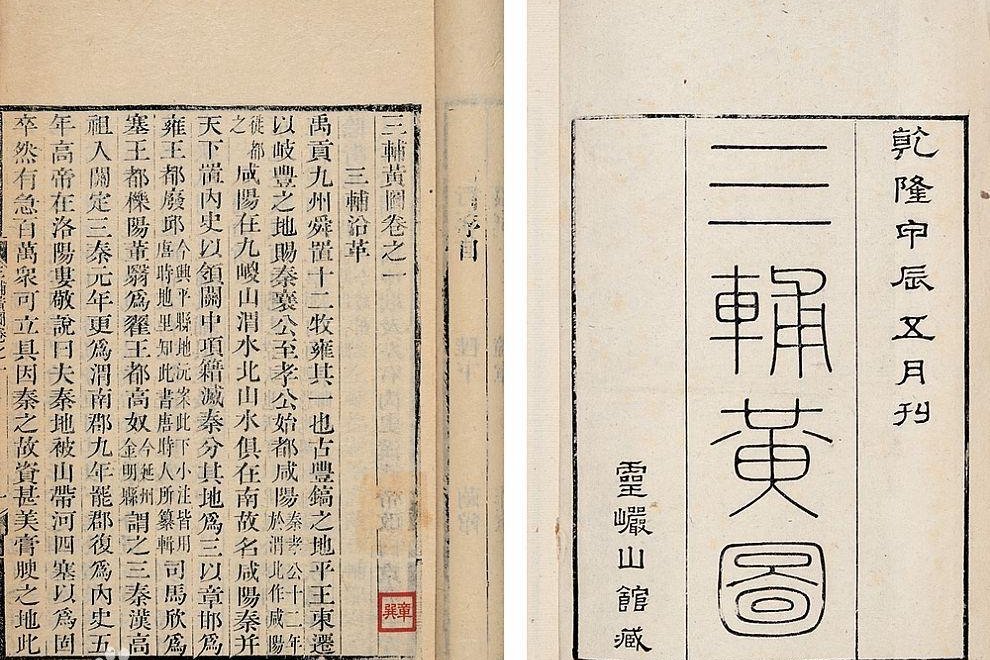 乾隆甲辰五月刊
三輔黃圖
靈巖山館藏
三輔黃圖卷之一
三輔沿革
禹貢九州舜置十二牧雍其一也古豐鎬之地平王東遷
以岐豐之地賜秦襄公至孝公始都咸陽秦孝公十二年於渭北作咸陽
徙都之咸陽在九嵕山渭水北山水俱在南故名咸陽秦并
天下置內史以領關中項籍滅秦分其地爲三以章邯爲
雍王都廢邱今興平縣地沅案此下小注皆用唐時地里知此書唐時人所纂輯司馬欣爲
塞王都櫟陽董翳爲翟王都高奴今延州金明縣謂之三秦漢高
祖入關定三秦元年更爲渭南郡九年罷郡復爲內史五
年高帝在洛陽婁敬說曰夫秦地被山帶河四塞以爲固
卒然有急百萬衆可立具因秦之故資甚美膏腴之地此
章巽